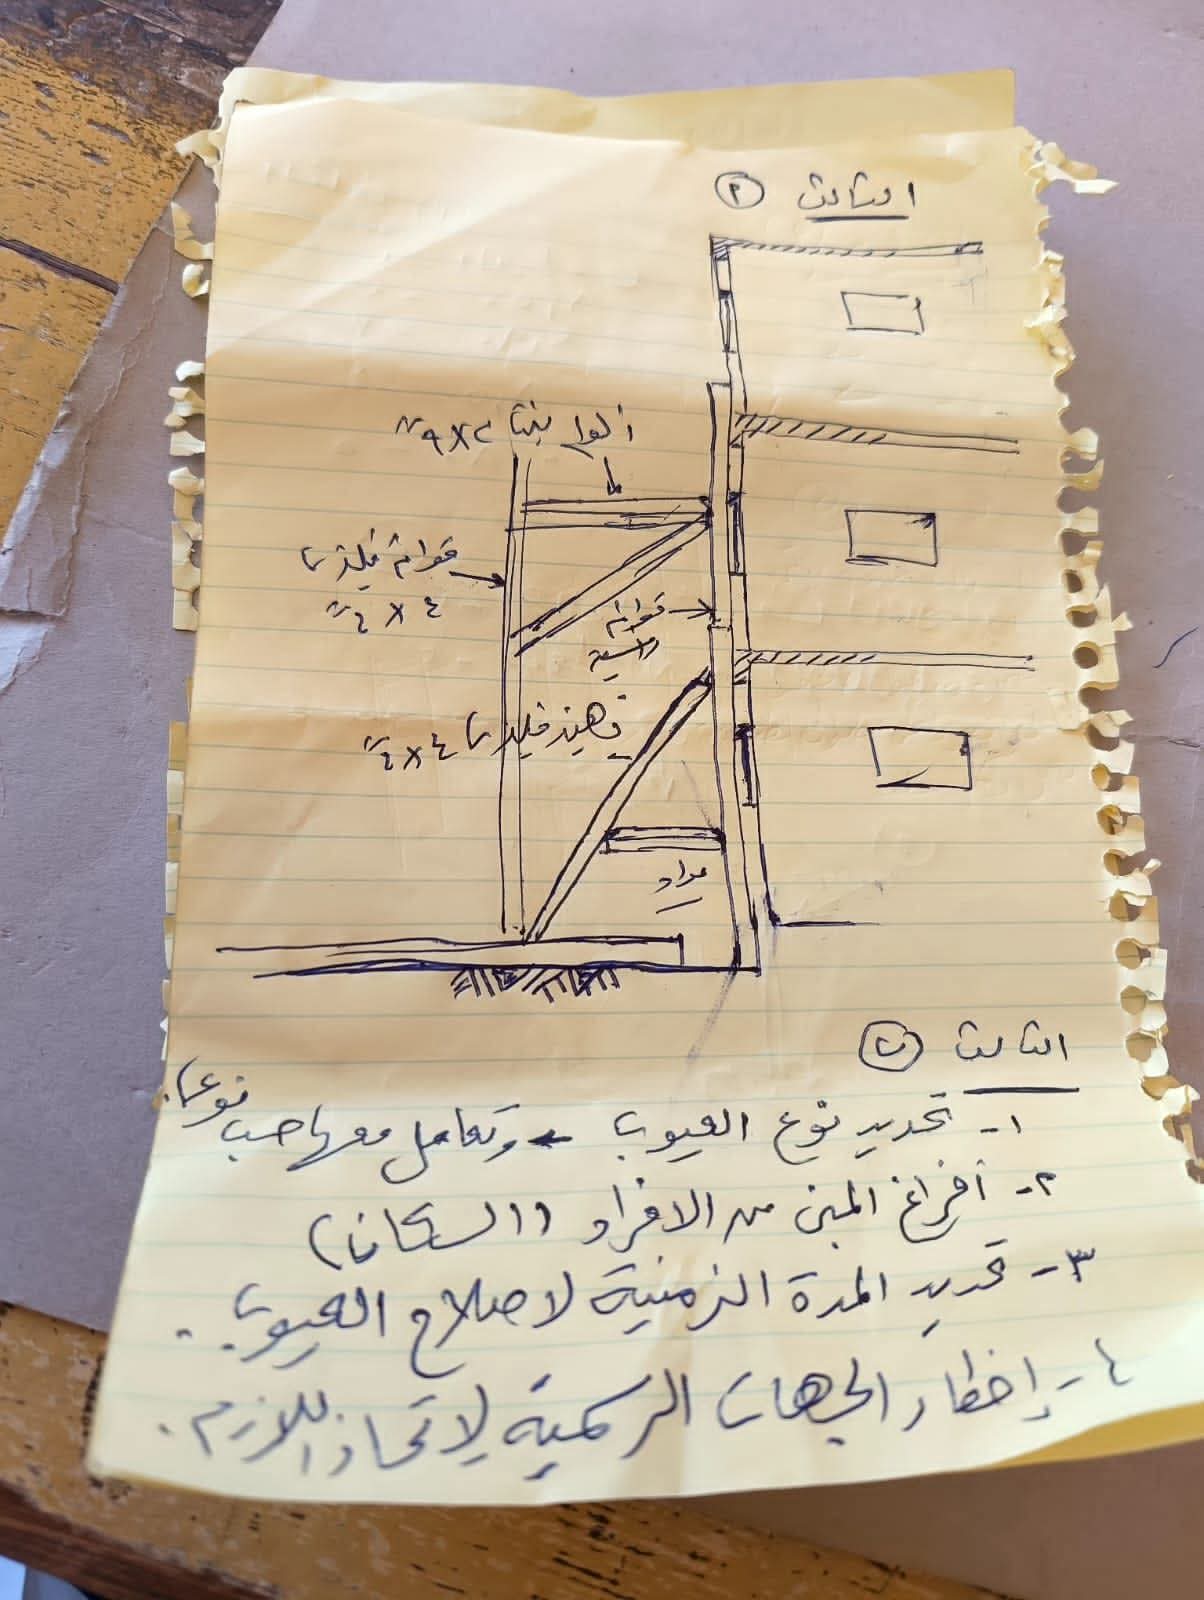 الثالث (٢)
ألواح بنتي ٢×٩"
قوائم فليري
٤×٤"
قوائم
رأسية
نهيز فليري ٤×٤"
مداد
الثالث (ب)
١- تحديد نوع العيوب وتعامل معها حسب نوعها.
٢- أفراغ المبنى من الافراد (السكان)
٣- تحديد المدة الزمنية لاصلاح العيوب.
٤- إخطار الجهات الرسمية لاتخاذ اللازم.